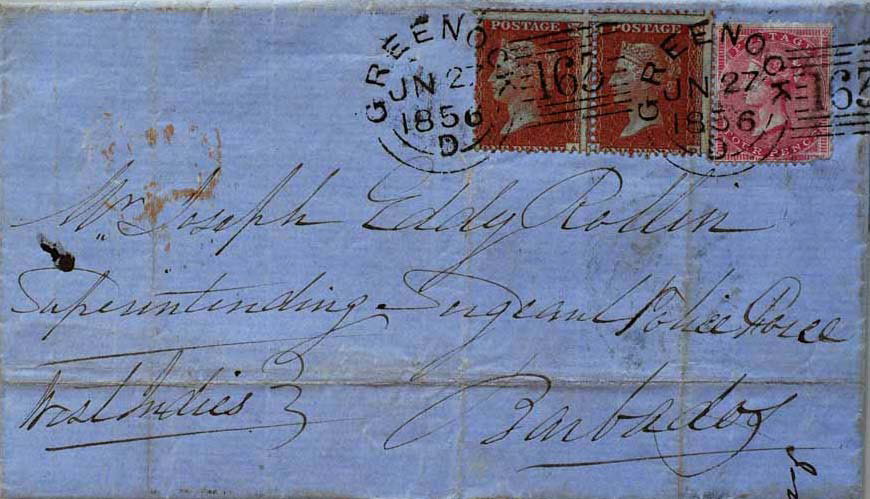 POSTAGE POSTAGE POSTAGE
GREENOCK GREENOCK
JN 27 JN 27
1856 1856
D D
163 163
FOUR PENCE
Mr Joseph Eddy Rollin
Superintending Sergeant Police Force
West Indies
Barbados